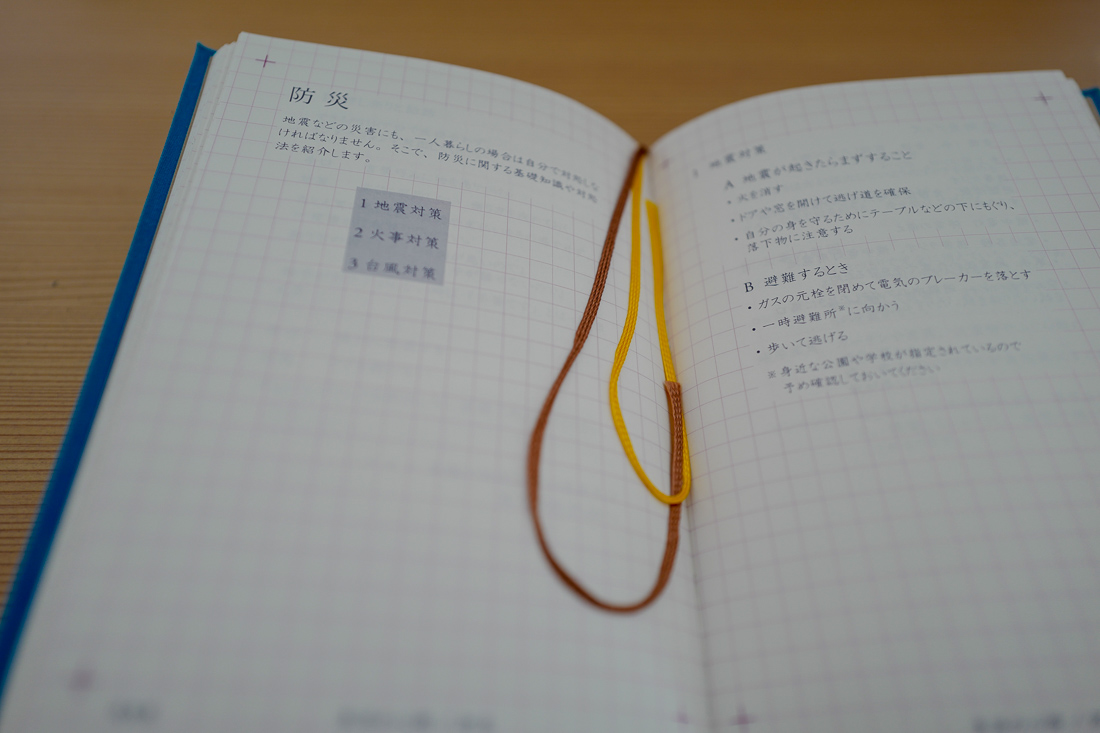 防災
地震などの災害にも、一人暮らしの場合は自分で対処しな
ければなりません。そこで、防災に関する基礎知識や対処
法を紹介します。
1 地震対策
2 火事対策
3 台風対策
1 地震対策
A 地震が起きたらまずすること
・火を消す
・ドアや窓を開けて逃げ道を確保
・自分の身を守るためにテーブルなどの下にもぐり、
落下物に注意する
B 避難するとき
・ガスの元栓を閉めて電気のブレーカーを落とす
・一時避難所※に向かう
・歩いて逃げる
※身近な公園や学校が指定されているので
予め確認しておいてください